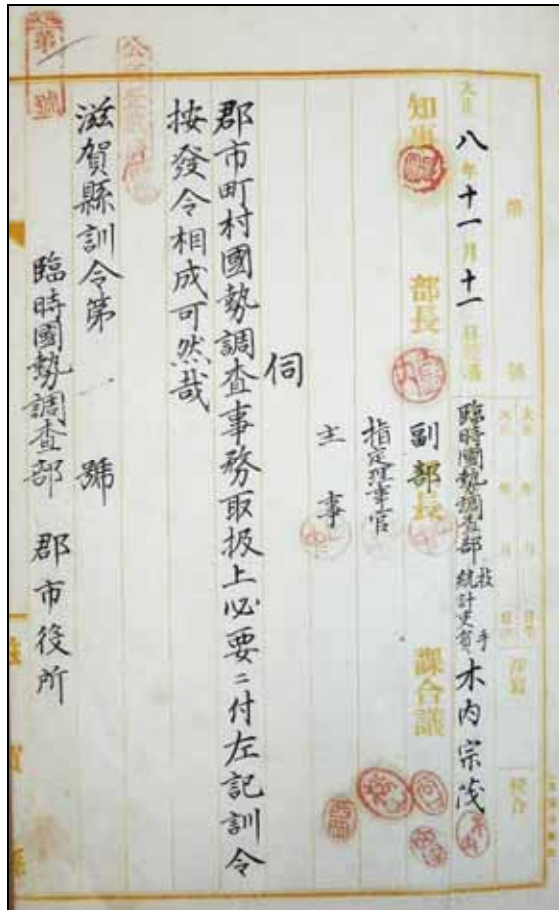 第 號
大正 八年十一月十一日
臨時國勢調査部 統計吏員 技手 木内宗茂
知事 部長 副部長 課合議
指定理事官
主事
伺
郡市町村國勢調査事務取扱上必要ニ付左記訓令
按發令相成可然哉
滋賀縣訓令第 號
臨時國勢調査部 郡市役所
第 號